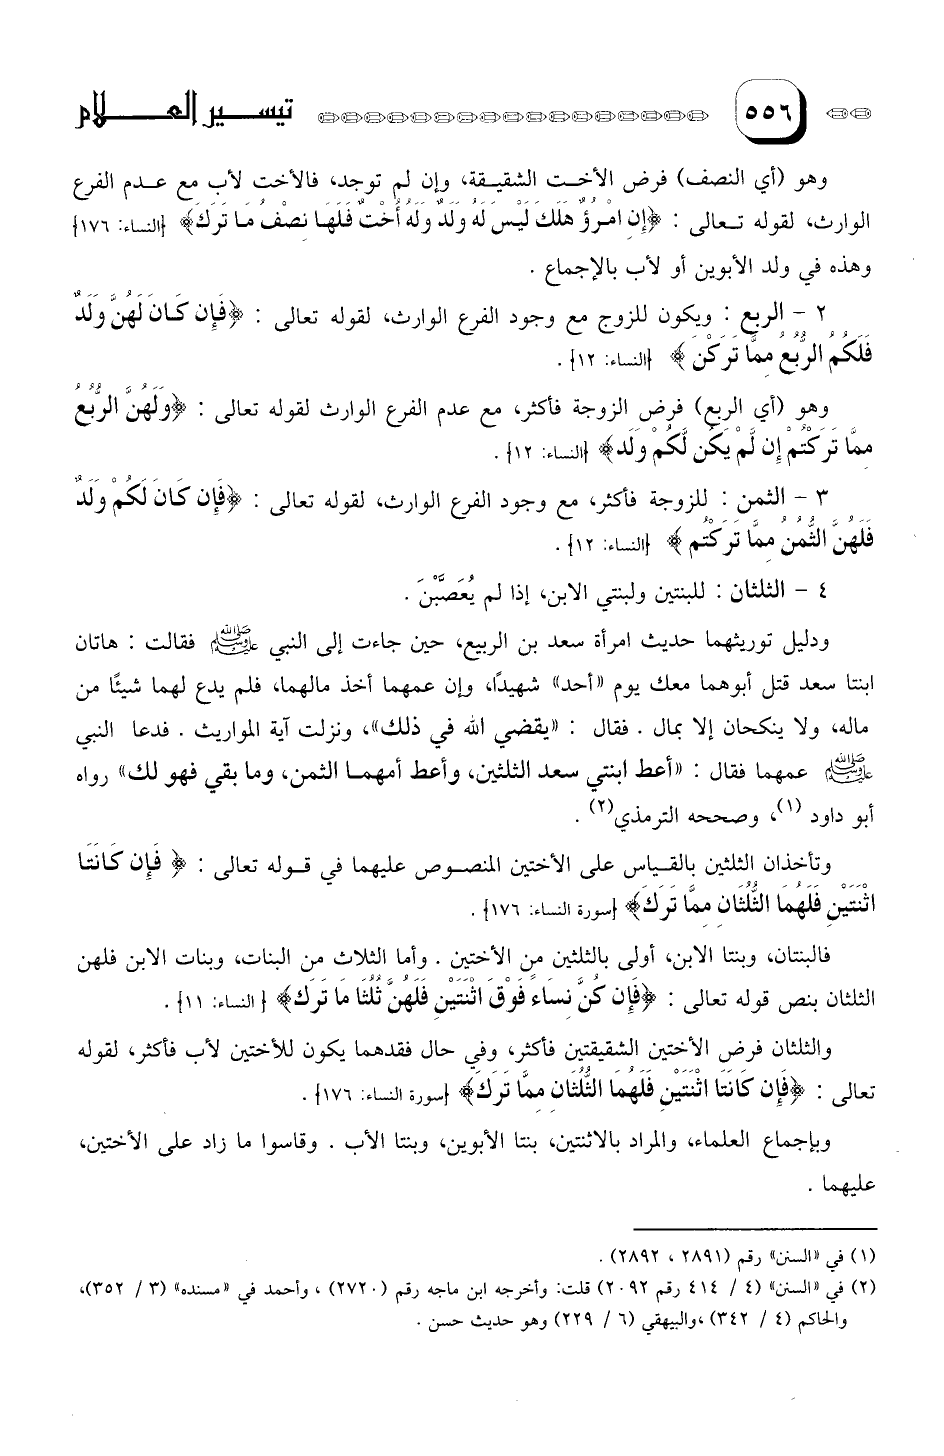 ٥٥٦ تيسير العلام
وهو (أي النصف) فرض الأخت الشقيقة، وإن لم توجد، فالأخت لأب مع عدم الفرع
الوارث، لقوله تعالى : ﴿إِن امْرُؤٌ هَلَكَ لَيْسَ لَهُ وَلَدٌ وَلَهُ أُخْتٌ فَلَهَا نِصْفُ مَا تَرَكَ﴾ {النساء: ١٧٦}
وهذه في ولد الأبوين أو لأب بالإجماع .
٢ - الربع : ويكون للزوج مع وجود الفرع الوارث، لقوله تعالى : ﴿فَإِن كَـانَ لَهُنَّ وَلَدٌ
فَلَكُمُ الرُّبُعُ مِمَّا تَرَكْنَ ﴾ {النساء: ١٢} .
وهو (أي الربع) فرض الزوجة فأكثر، مع عدم الفرع الوارث لقوله تعالى : ﴿وَلَهُنَّ الرُّبُعُ
مِمَّا تَرَكْتُمْ إِن لَّمْ يَكُن لَّكُمْ وَلَد﴾ {النساء: ١٢} .
٣ - الثمن : للزوجة فأكثر، مع وجود الفرع الوارث، لقوله تعالى : ﴿فَإِن كَانَ لَكُمْ وَلَدٌ
فَلَهُنَّ الثُّمُنُ مِمَّا تَرَكْتُم ﴾ {النساء: ١٢} .
٤ - الثلثان : للبنتين ولبنتي الابن، إذا لم يُعَصَّبْنَ .
ودليل توريثهما حديث امرأة سعد بن الربيع، حين جاءت إلى النبي ﷺ فقالت : هاتان
ابنتا سعد قتل أبوهما معك يوم «أحد» شهيدًا، وإن عمهما أخذ مالهما، فلم يدع لهما شيئًا من
ماله، ولا ينكحان إلا بمال . فقال : «يقضي الله في ذلك»، ونزلت آية المواريث . فدعا النبي
ﷺ عمهما فقال : «أعط ابنتي سعد الثلثين، وأعط أمهما الثمن، وما بقي فهو لك» رواه
أبو داود (١)، وصححه الترمذي(٢) .
وتأخذان الثلثين بالقياس على الأختين المنصوص عليهما في قوله تعالى : ﴿ فَإِن كَانَتَا
اثْنَتَيْنِ فَلَهُمَا الثُّلُثَانِ مِمَّا تَرَكَ﴾ {سورة النساء: ١٧٦} .
فالبنتان، وبنتا الابن، أولى بالثلثين من الأختين . وأما الثلاث من البنات، وبنات الابن فلهن
الثلثان بنص قوله تعالى : ﴿فَإِن كُنَّ نِسَاءً فَوْقَ اثْنَتَيْنِ فَلَهُنَّ ثُلُثَا مَا تَرَكَ﴾ { النساء: ١١} .
والثلثان فرض الأختين الشقيقتين فأكثر، وفي حال فقدهما يكون للأختين لأب فأكثر، لقوله
تعالى : ﴿فَإِن كَانَتَا اثْنَتَيْنِ فَلَهُمَا الثُّلُثَانِ مِمَّا تَرَكَ﴾ {سورة النساء: ١٧٦} .
وبإجماع العلماء، والمراد بالاثنتين، بنتا الأبوين، وبنتا الأب . وقاسوا ما زاد على الأختين،
عليهما .
(١) في «السنن» رقم (٢٨٩١ ، ٢٨٩٢) .
(٢) في «السنن» (٤ / ٤١٤ رقم ٢٠٩٢) قلت: وأخرجه ابن ماجه رقم (٢٧٢٠) ، وأحمد في «مسنده» (٣ / ٣٥٢)،
والحاكم (٤ / ٣٤٢) ،والبيهقي (٦ / ٢٢٩) وهو حديث حسن .